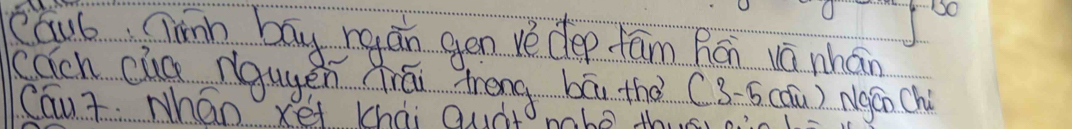 Câu 6: Trình bày ngắn gọn vẻ đẹp tâm hồn và nhân
cách của Nguyễn Trãi trong bài thơ (3-5 câu) Ngôn Chí
Câu 7: Nhận xét khái quát nghệ thuật của